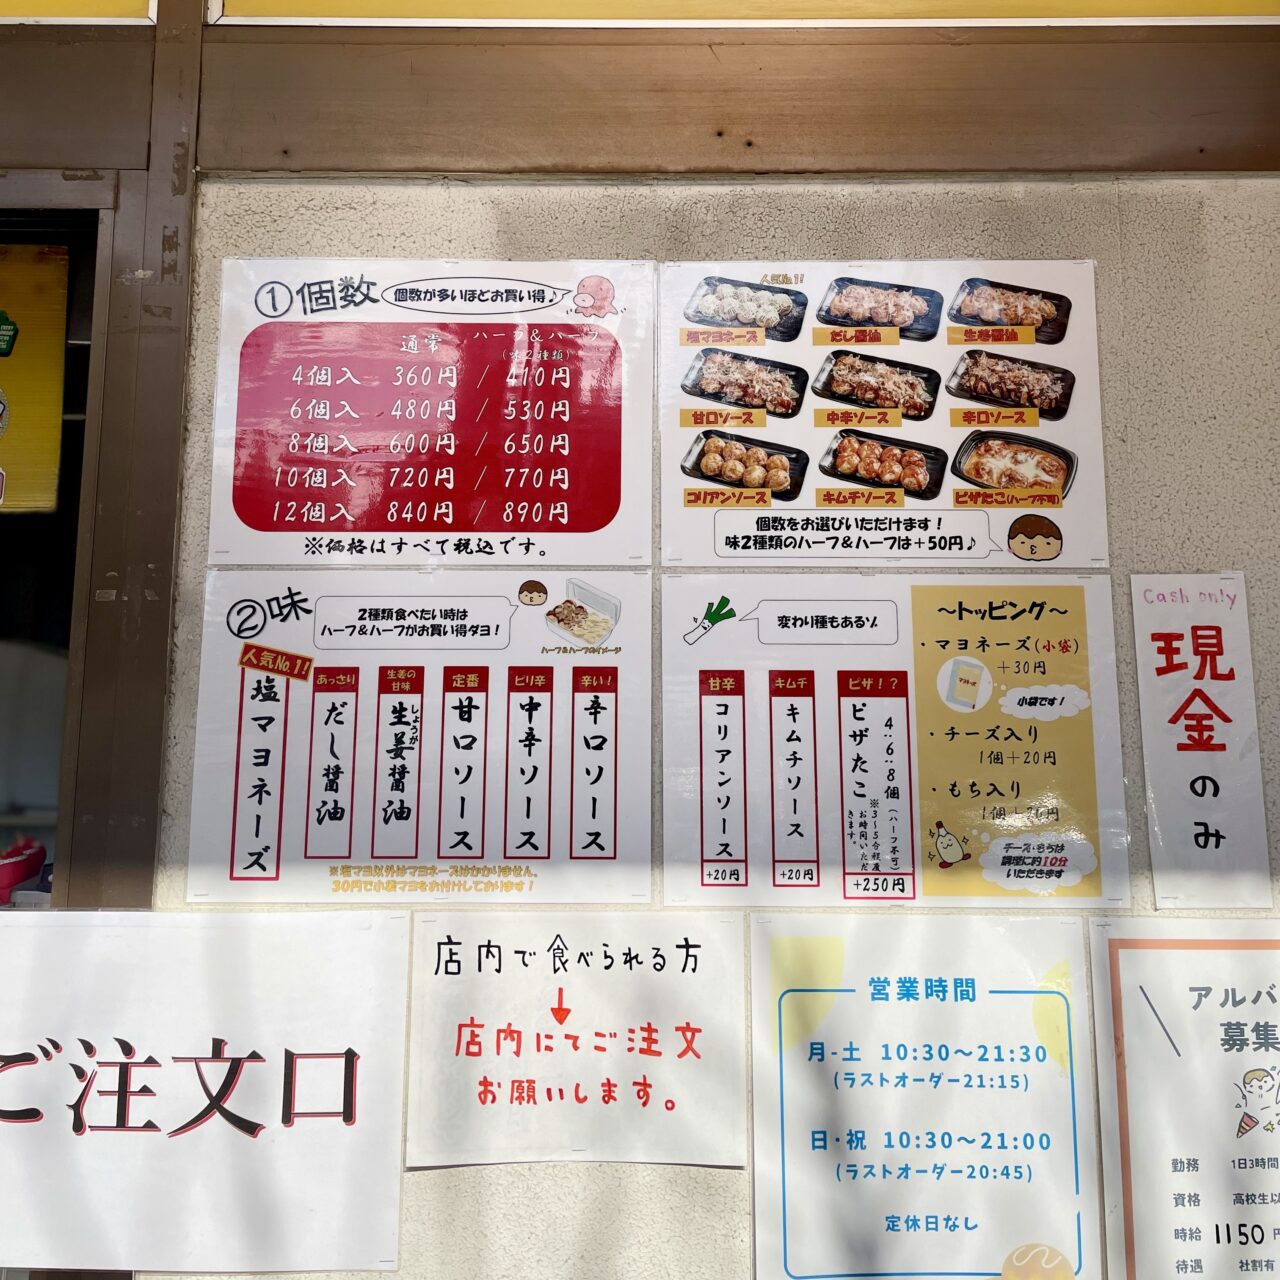 ①個数
個数が多いほどお買い得♪
通常 ハーフ&ハーフ
(味2種類)
4個入 360円 / 410円
6個入 480円 / 530円
8個入 600円 / 650円
10個入 720円 / 770円
12個入 840円 / 890円
※価格はすべて税込です。
人気No.1!
塩マヨネーズ
だし醤油
生姜醤油
甘口ソース
中辛ソース
辛口ソース
コリアンソース
キムチソース
ピザたこ(ハーフ不可)
個数をお選びいただけます!
味2種類のハーフ&ハーフは+50円♪
②味
2種類食べたい時は
ハーフ&ハーフがお買い得ダヨ!
ハーフ&ハーフのイメージ
人気No.1!
塩マヨネーズ
あっさり
だし醤油
生姜の
甘味
生姜醤油
しょうが
定番
甘口ソース
ピリ辛
中辛ソース
辛い!
辛口ソース
※塩マヨ以外はマヨネーズはかかりません。
30円で小袋マヨをお付けしております!
変わり種もあるゾ
甘辛
コリアンソース
+20円
キムチ
キムチソース
+20円
ピザ!?
ピザたこ
4:6:8個(ハーフ不可)
※3~5分程度
お時間いただ
きます。
+250円
~トッピング~
・マヨネーズ(小袋)
+30円
小袋です!
・チーズ入り
1個+20円
・もち入り
1個+20円
チーズ・もちは
調理に約10分
いただきます
Cash only
現金のみ
ご注文口
店内で食べられる方
↓
店内にてご注文
お願いします。
営業時間
月-土 10:30~21:30
(ラストオーダー21:15)
日・祝 10:30~21:00
(ラストオーダー20:45)
定休日なし
アルバ
募集
勤務 1日3時間
資格 高校生以
時給 1150円
待遇 社割有